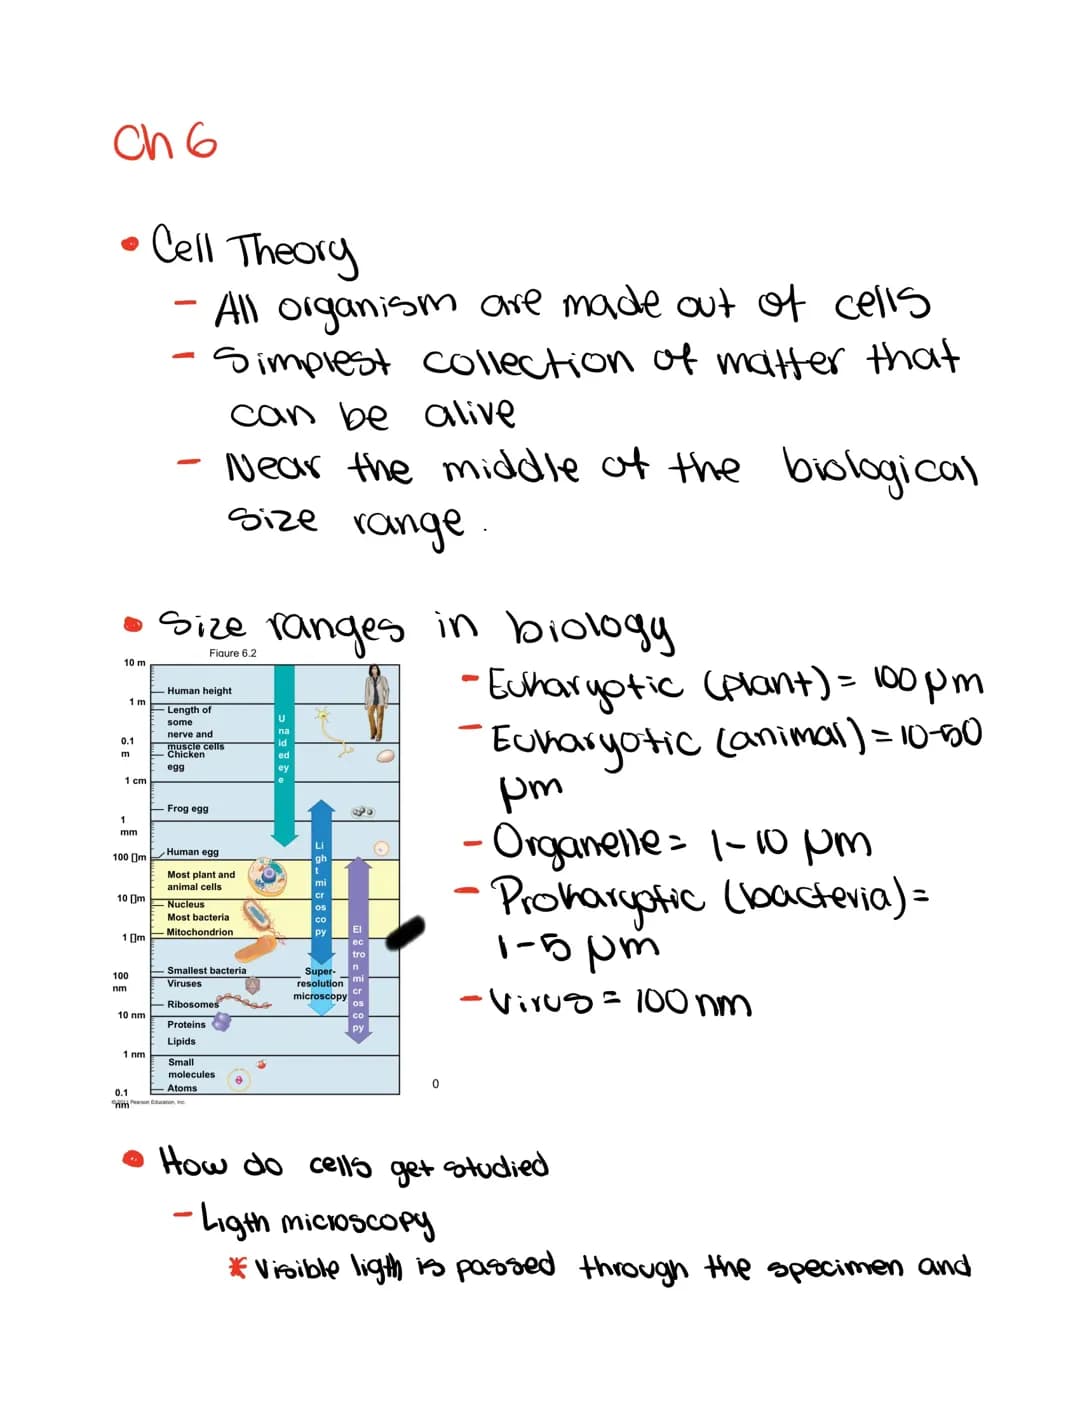 Ch 6
• Cell Theory
- All organism are made out of cells
- Simplest collection of matter that
can be alive
- Near the middle of the biological
size range.
• Size ranges in biology
Figure 6.2
10 m
Human height
1 m
Length of
some
nerve and
muscle cells
0.1
m
Chicken
egg
1 cm
Frog egg
1
mm
100 []m
Human egg
Most plant and
animal cells
10 []m
Nucleus
Most bacteria
Mitochondrion
1 []m
Smallest bacteria
100
nm
Viruses
Ribosomes
10 nm
Proteins
Lipids
1 nm
Small
molecules
Atoms
0.1
nm
U
na
id
ed
ey
e
Li
gh
t
mi
cr
os
co
py
Super-
resolution
microscopy
El
ec
tro
n
mi
cr
os
co
py
© 2011 Pearson Education, Inc.
- Eukaryotic (plant) = 100 µm
- Eukaryotic (animal) = 10-50
µm
- Organelle = 1-10 µm
- Prokaryotic (bacteria) =
1-5 µm
- Virus = 100 nm
0
• How do cells get studied
- Ligth microscopy
* Visible ligth is passed through the specimen and